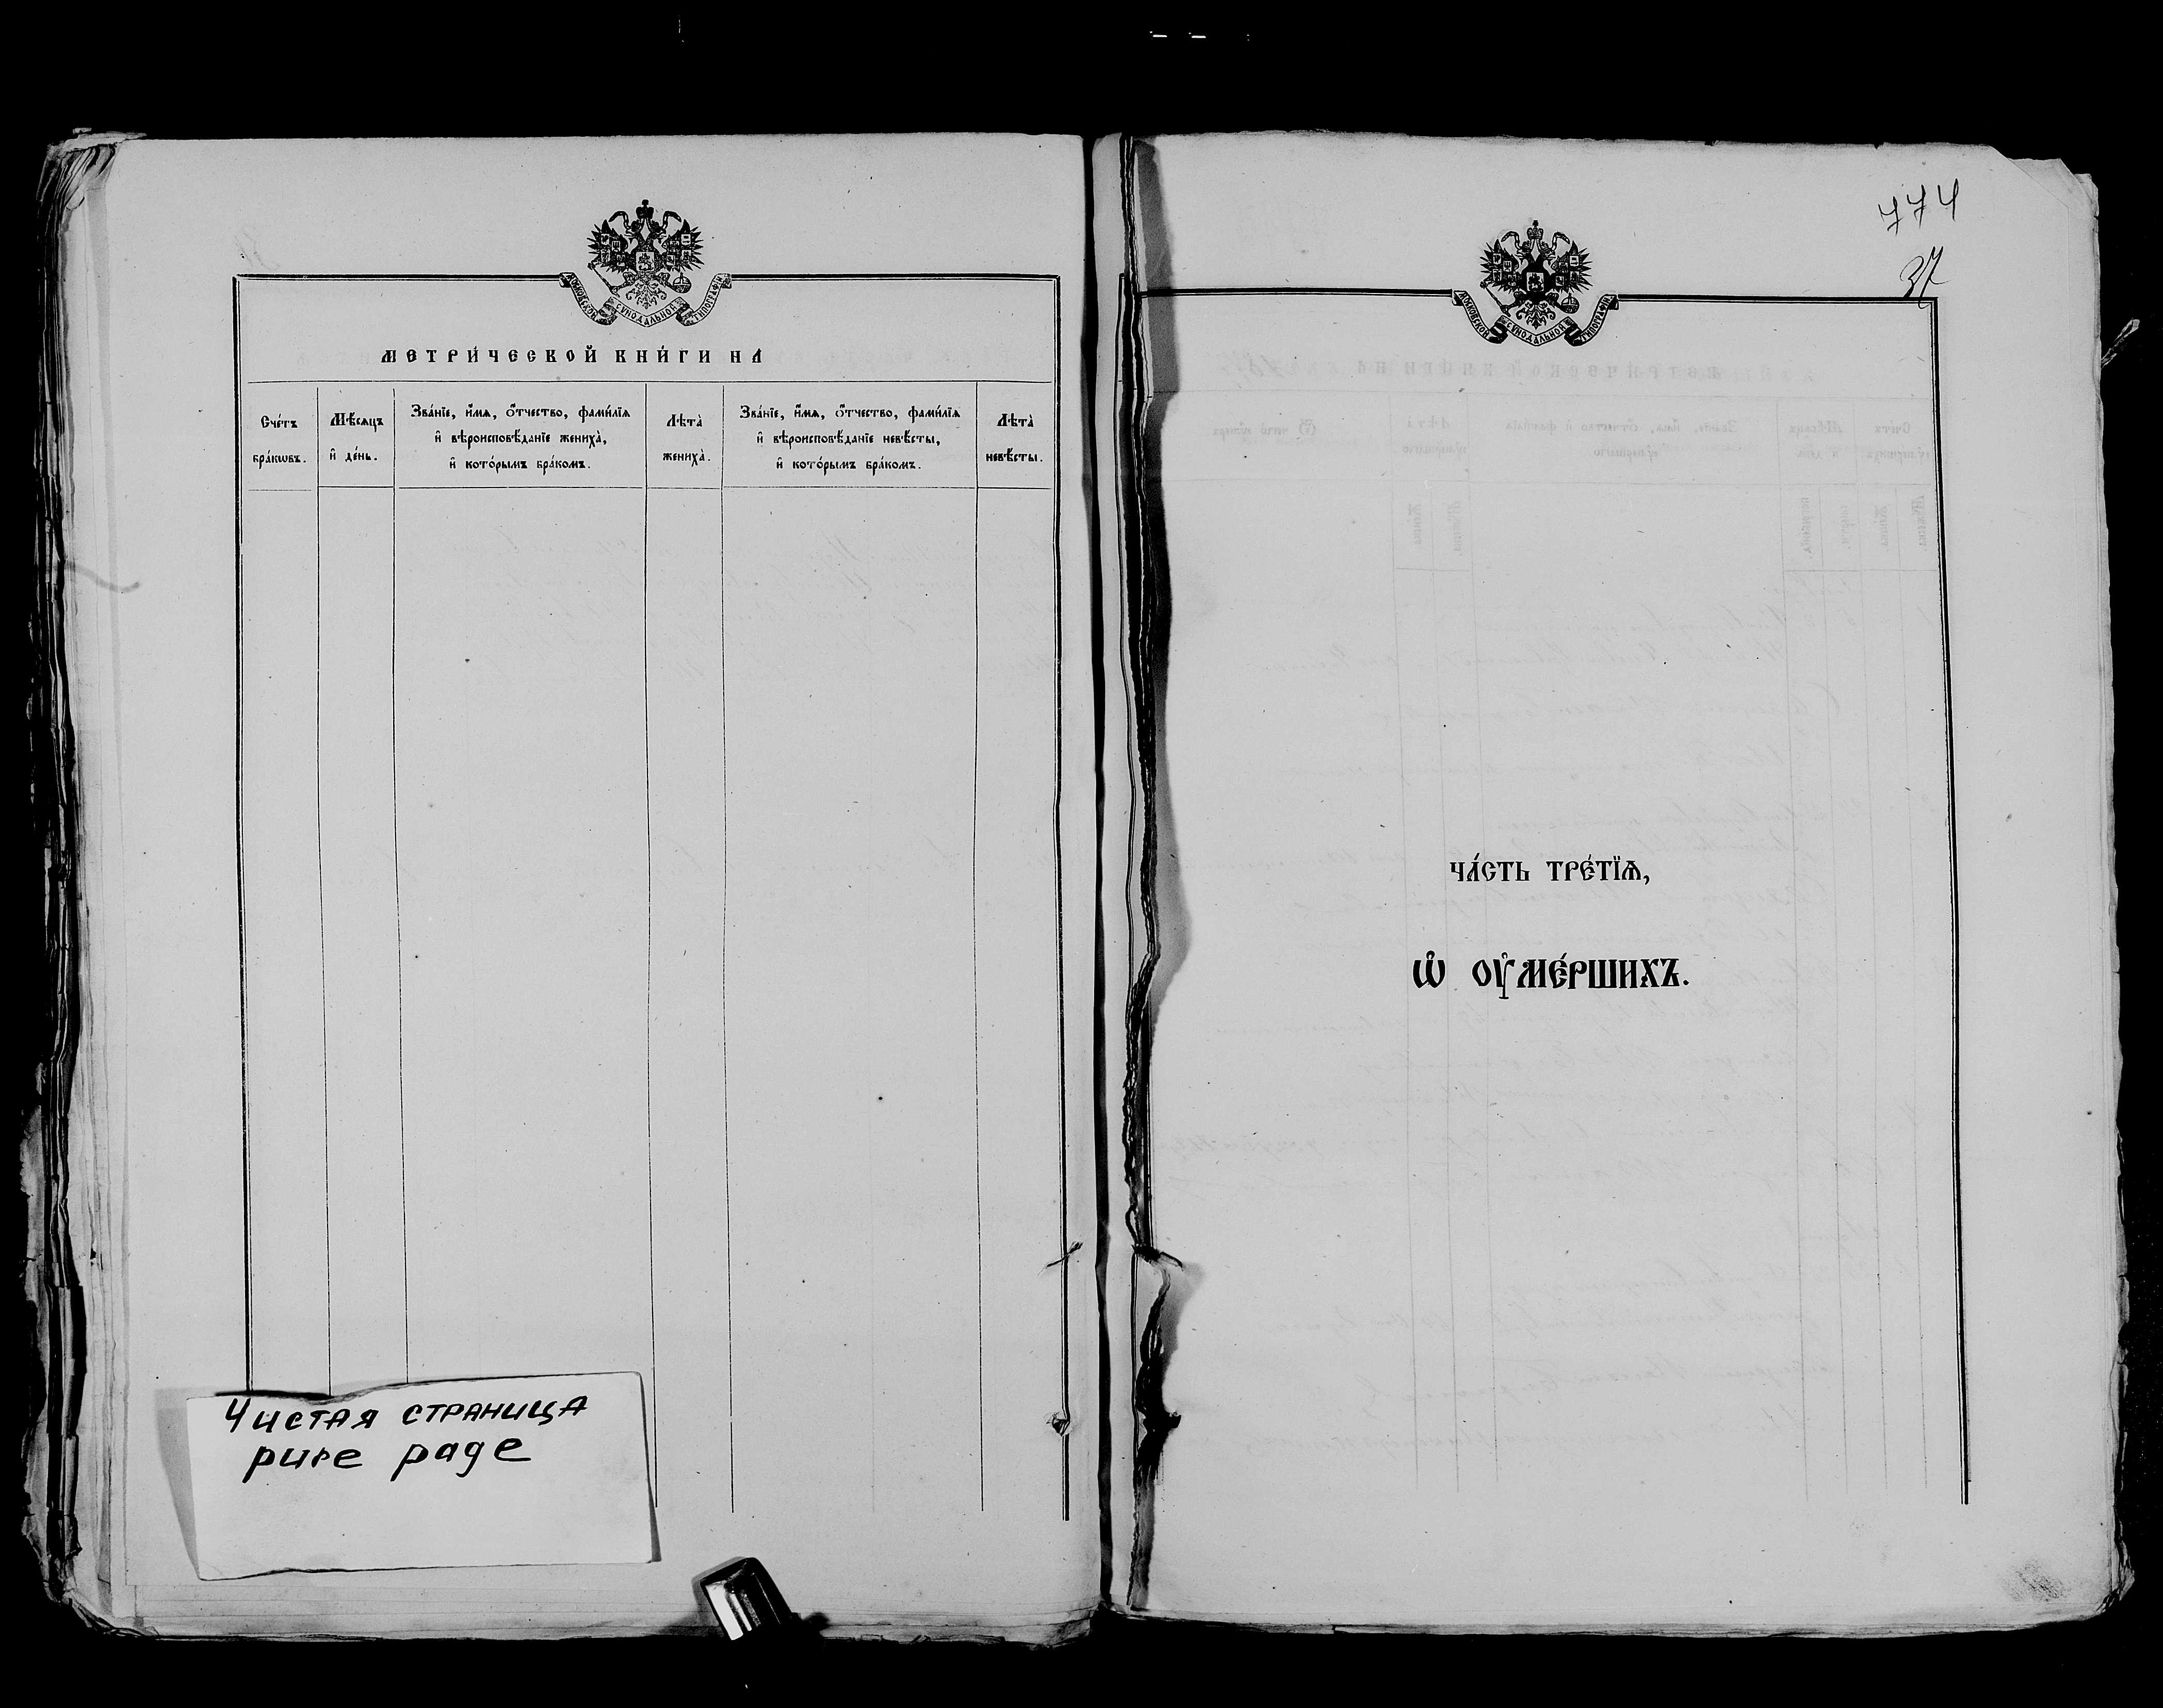 МОСКОВСКОЙ СѴНОДАЛЬНОЙ ТИПОГРАФІИ
МЕТРИ́ЧЕСКОЙ КНИ́ГИ НА
Сче́тъ
бра́кѡвъ.
Мѣ́сяцъ
и҆ де́нь.
Зва́нїе, и҆́мѧ, ѻ҆́тчество, фами́лїѧ
и҆ вѣроисповѣ́данїе жениха̀,
и҆ кото́рымъ бра́комъ.
Лѣта̀
жениха̀.
Зва́нїе, и҆́мѧ, ѻ҆́тчество, фами́лїѧ
и҆ вѣроисповѣ́данїе невѣ́сты,
и҆ кото́рымъ бра́комъ.
Лѣта̀
невѣ́сты.
Чистая страница
pure page
774
37
МОСКОВСКОЙ СѴНОДАЛЬНОЙ ТИПОГРАФІИ
ЧА́СТЬ ТРЕ́ТЇѦ,
Ѡ҆ ОУ҆МЕ́РШИХЪ.